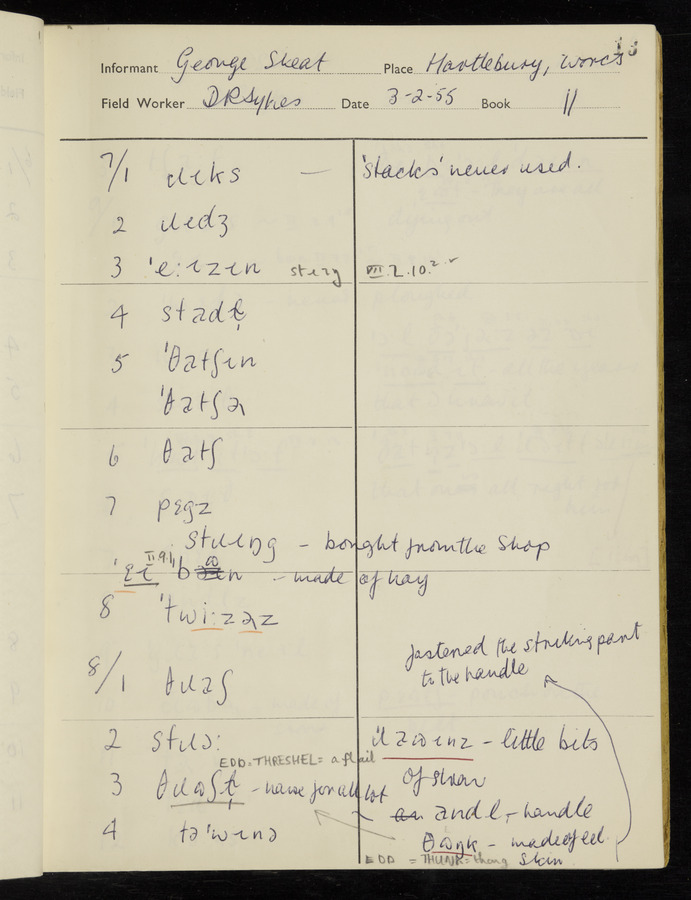 Informant George Skeat Place Hartlebury, Worcs
Field Worker D R Sykes Date 3-2-55 Book 11
7/1 ɹɪks — 'stacks' never used.
2 ɹedʒ
3 'e:ɹɪzɪn VII.2.10.
4 stadḷ
5 'θatʃɪn
'θatʃə
6 θatʃ
7 pɛgz
stɹɪŋg – bought from the Shop
II.9.11 – made of hay
8 'twi:zəz
fastened the striking part
to the handle
8/1 θɹaʃ
2 stɹɔ: – little bits
EDD = THRESHEL = a flail
of straw
3 – name for all lot
andl – handle
4
θɒŋk – made of eel
EDD = THUNK = thong skin